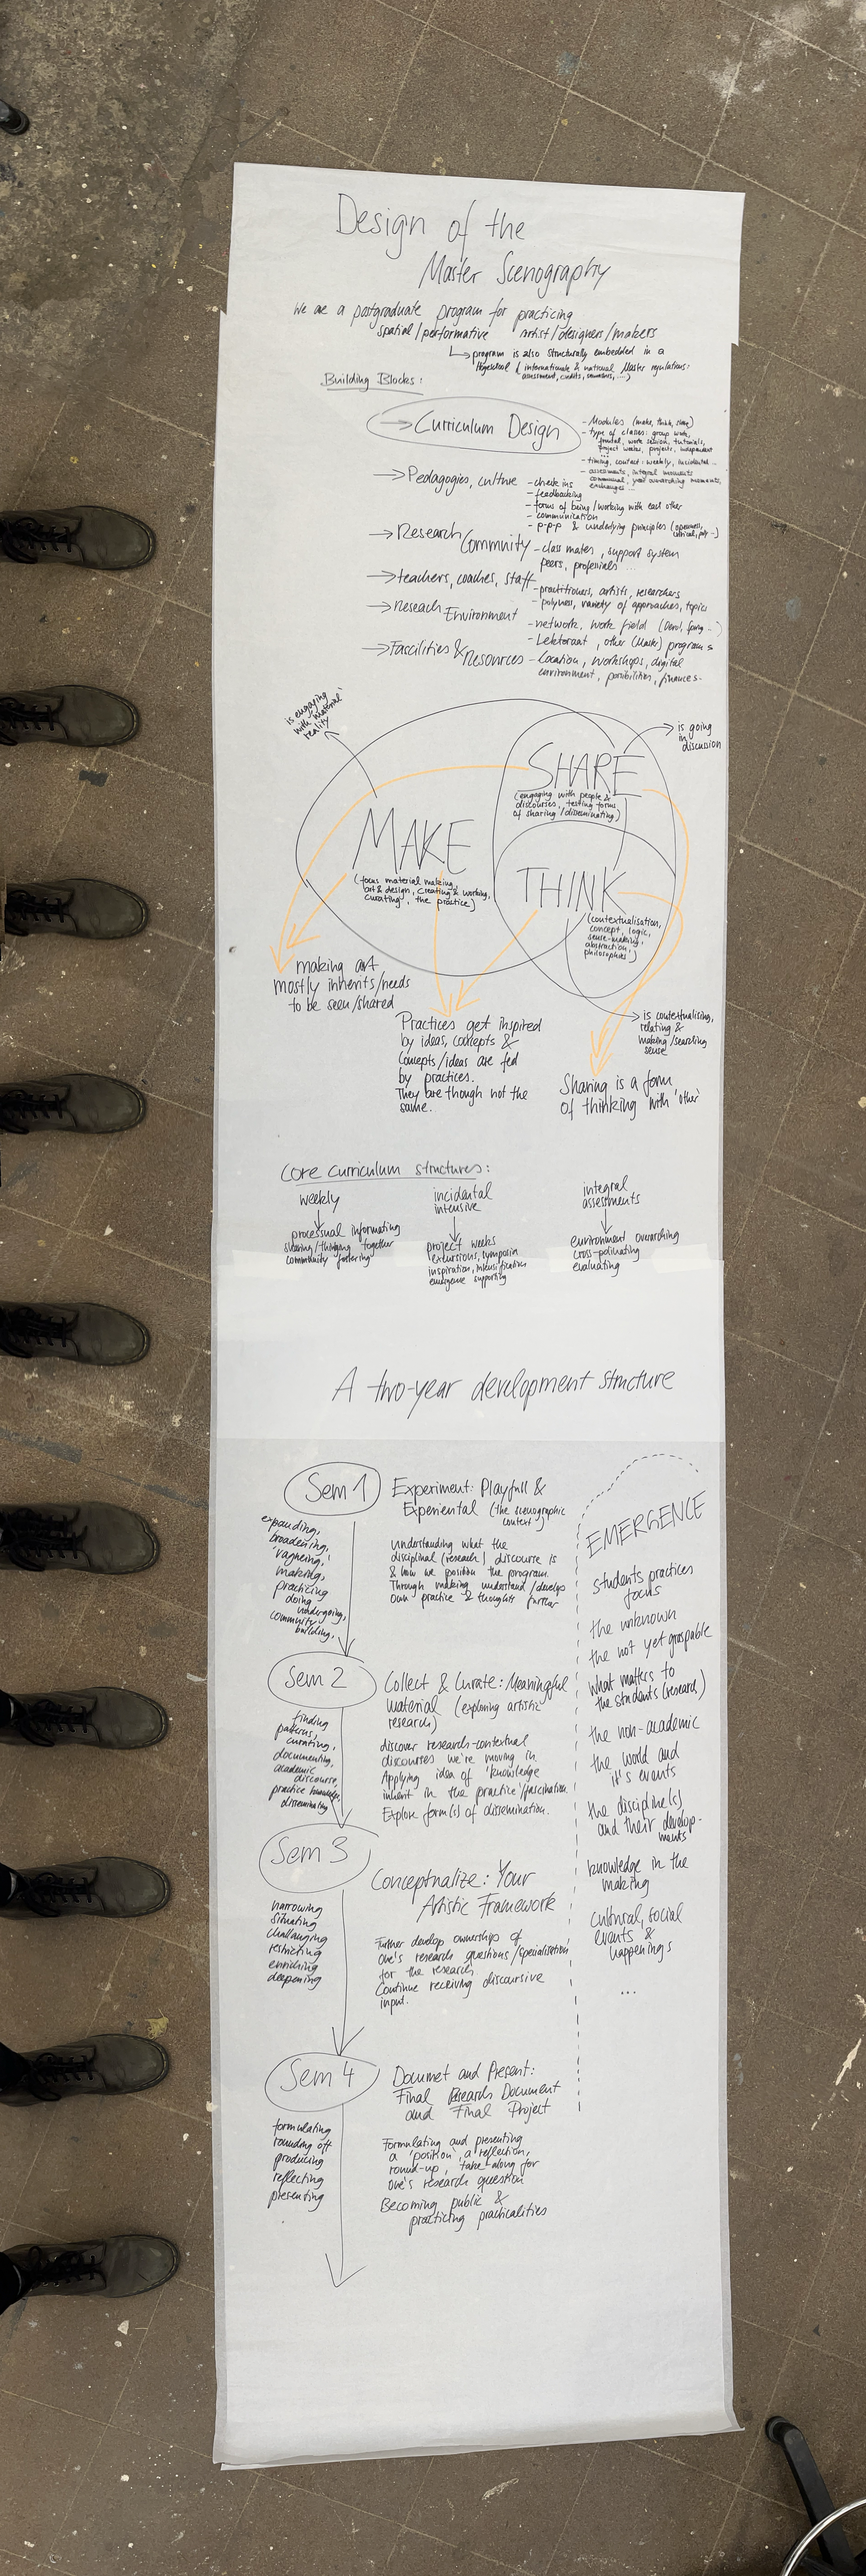 Design of the
Master Scenography
We are a postgraduate program for practicing
spatial/performative Artist/designers/makers
program is also structurally embedded in a
Hogeschool (internationale & national Master regulations:
assessment, credits, semesters, ....)
Building Blocks:
Curriculum Design
- Modules (make, think, share)
- type of classes: group work,
frontal, work session, tutorials,
project weeks, projects, independent
...
- timing, contact: weekly, incidental...
- assessments, integral moments
communal, year overarching moments,
exchanges...
Pedagogies, culture
- check ins
- feedbacking
- forms of being/working with each other
- communication
- p-p-p & underlying principles (openness,
critical, poly...)
Research Community
- class mates, support system
peers, profesials ...
teachers, coaches, staff
- practitioners, artists, researchers
- polyness, variety of approaches, topics
Reseach Environment
- network, work field
- Lektoraat, other (Master) programs
Fascilities & Resources
- Location, workshops, digital
environment, posibilities, finances.
is engaging
with 'material'
reality
MAKE
(focus material making,
art & design, creating & working,
curating, the practice)
SHARE
(engaging with people &
discourses, testing forms
of sharing/disseminating)
is going
in discussion
THINK
(contextualisation,
concept, logic,
sense-making,
abstraction,
philosophies)
making art
mostly inherits/needs
to be seen/shared
Practices get inspired
by ideas, concepts &
Concepts/ideas are fed
by practices.
They are though not the
same.
is contextualising,
relating &
making/searching
sense
Sharing is a form
of thinking with 'other'
Core Curriculum structures:
weekly
processual informating
sharing/thinking together
community fostering
incidental
intensive
project weeks
excursions, symposia
inspiration, intensification
emergence supporting
integral
assessments
environment overarching
cross-polinating
evaluating
A two-year development structure
Sem 1
expanding,
broadening,
'vagheing',
making,
practicing
doing
undergoing,
community
building,
Experiment: Playfull &
Experiental (the scenographic
context)
Understanding what the
disciplinal (research) discourse is
& how we position the program.
Through making understand/develop
own practice & thoughts further
Sem 2
finding
patterns,
curating,
documenting,
academic
discourse,
practice knowledge,
disseminating
Collect & Curate: Meaningful
material (exploring artistic
research)
discover research-contextual
discourses we're moving in
Applying idea of 'knowledge
inherit in the practice'/fascination
Explore form(s) of dissemination.
Sem 3
narrowing
situating
challanging
restricting
enriching
deepening
Conceptualize: Your
Artistic Framework
Further develop ownership of
one's research questions/specialisation
for the research.
Continue receiving discoursive
input.
Sem 4
formulating
rounding off
producing
reflecting
presenting
Documet and Present:
Final Research Document
and Final Project
Formulating and presenting
a 'position', a reflection,
round-up, take-along for
one's research question
Becoming public &
practicing practicalities
EMERGENCE
students practices
focus
the unknown
the not yet graspable
what matters to
the students (research)
the non-academic
the world and
it's events
the discipline(s)
and their develop-
ments
knowledge in the
making
cultural, social
events &
happenings
...